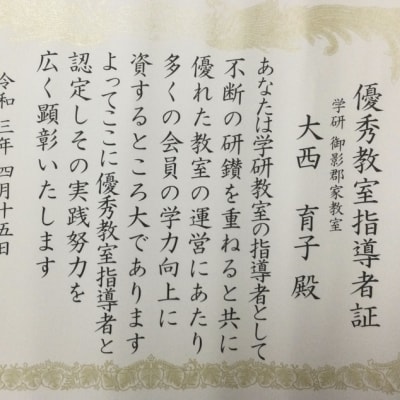 優秀教室指導者証
学研 御影郡家教室
大西 育子 殿
あなたは学研教室の指導者として
不断の研鑽を重ねると共に
優れた教室の運営にあたり
多くの会員の学力向上に
資するところ大であります
よってここに優秀教室指導者と
認定しその実践努力を
広く顕彰いたします
令和三年四月十五日